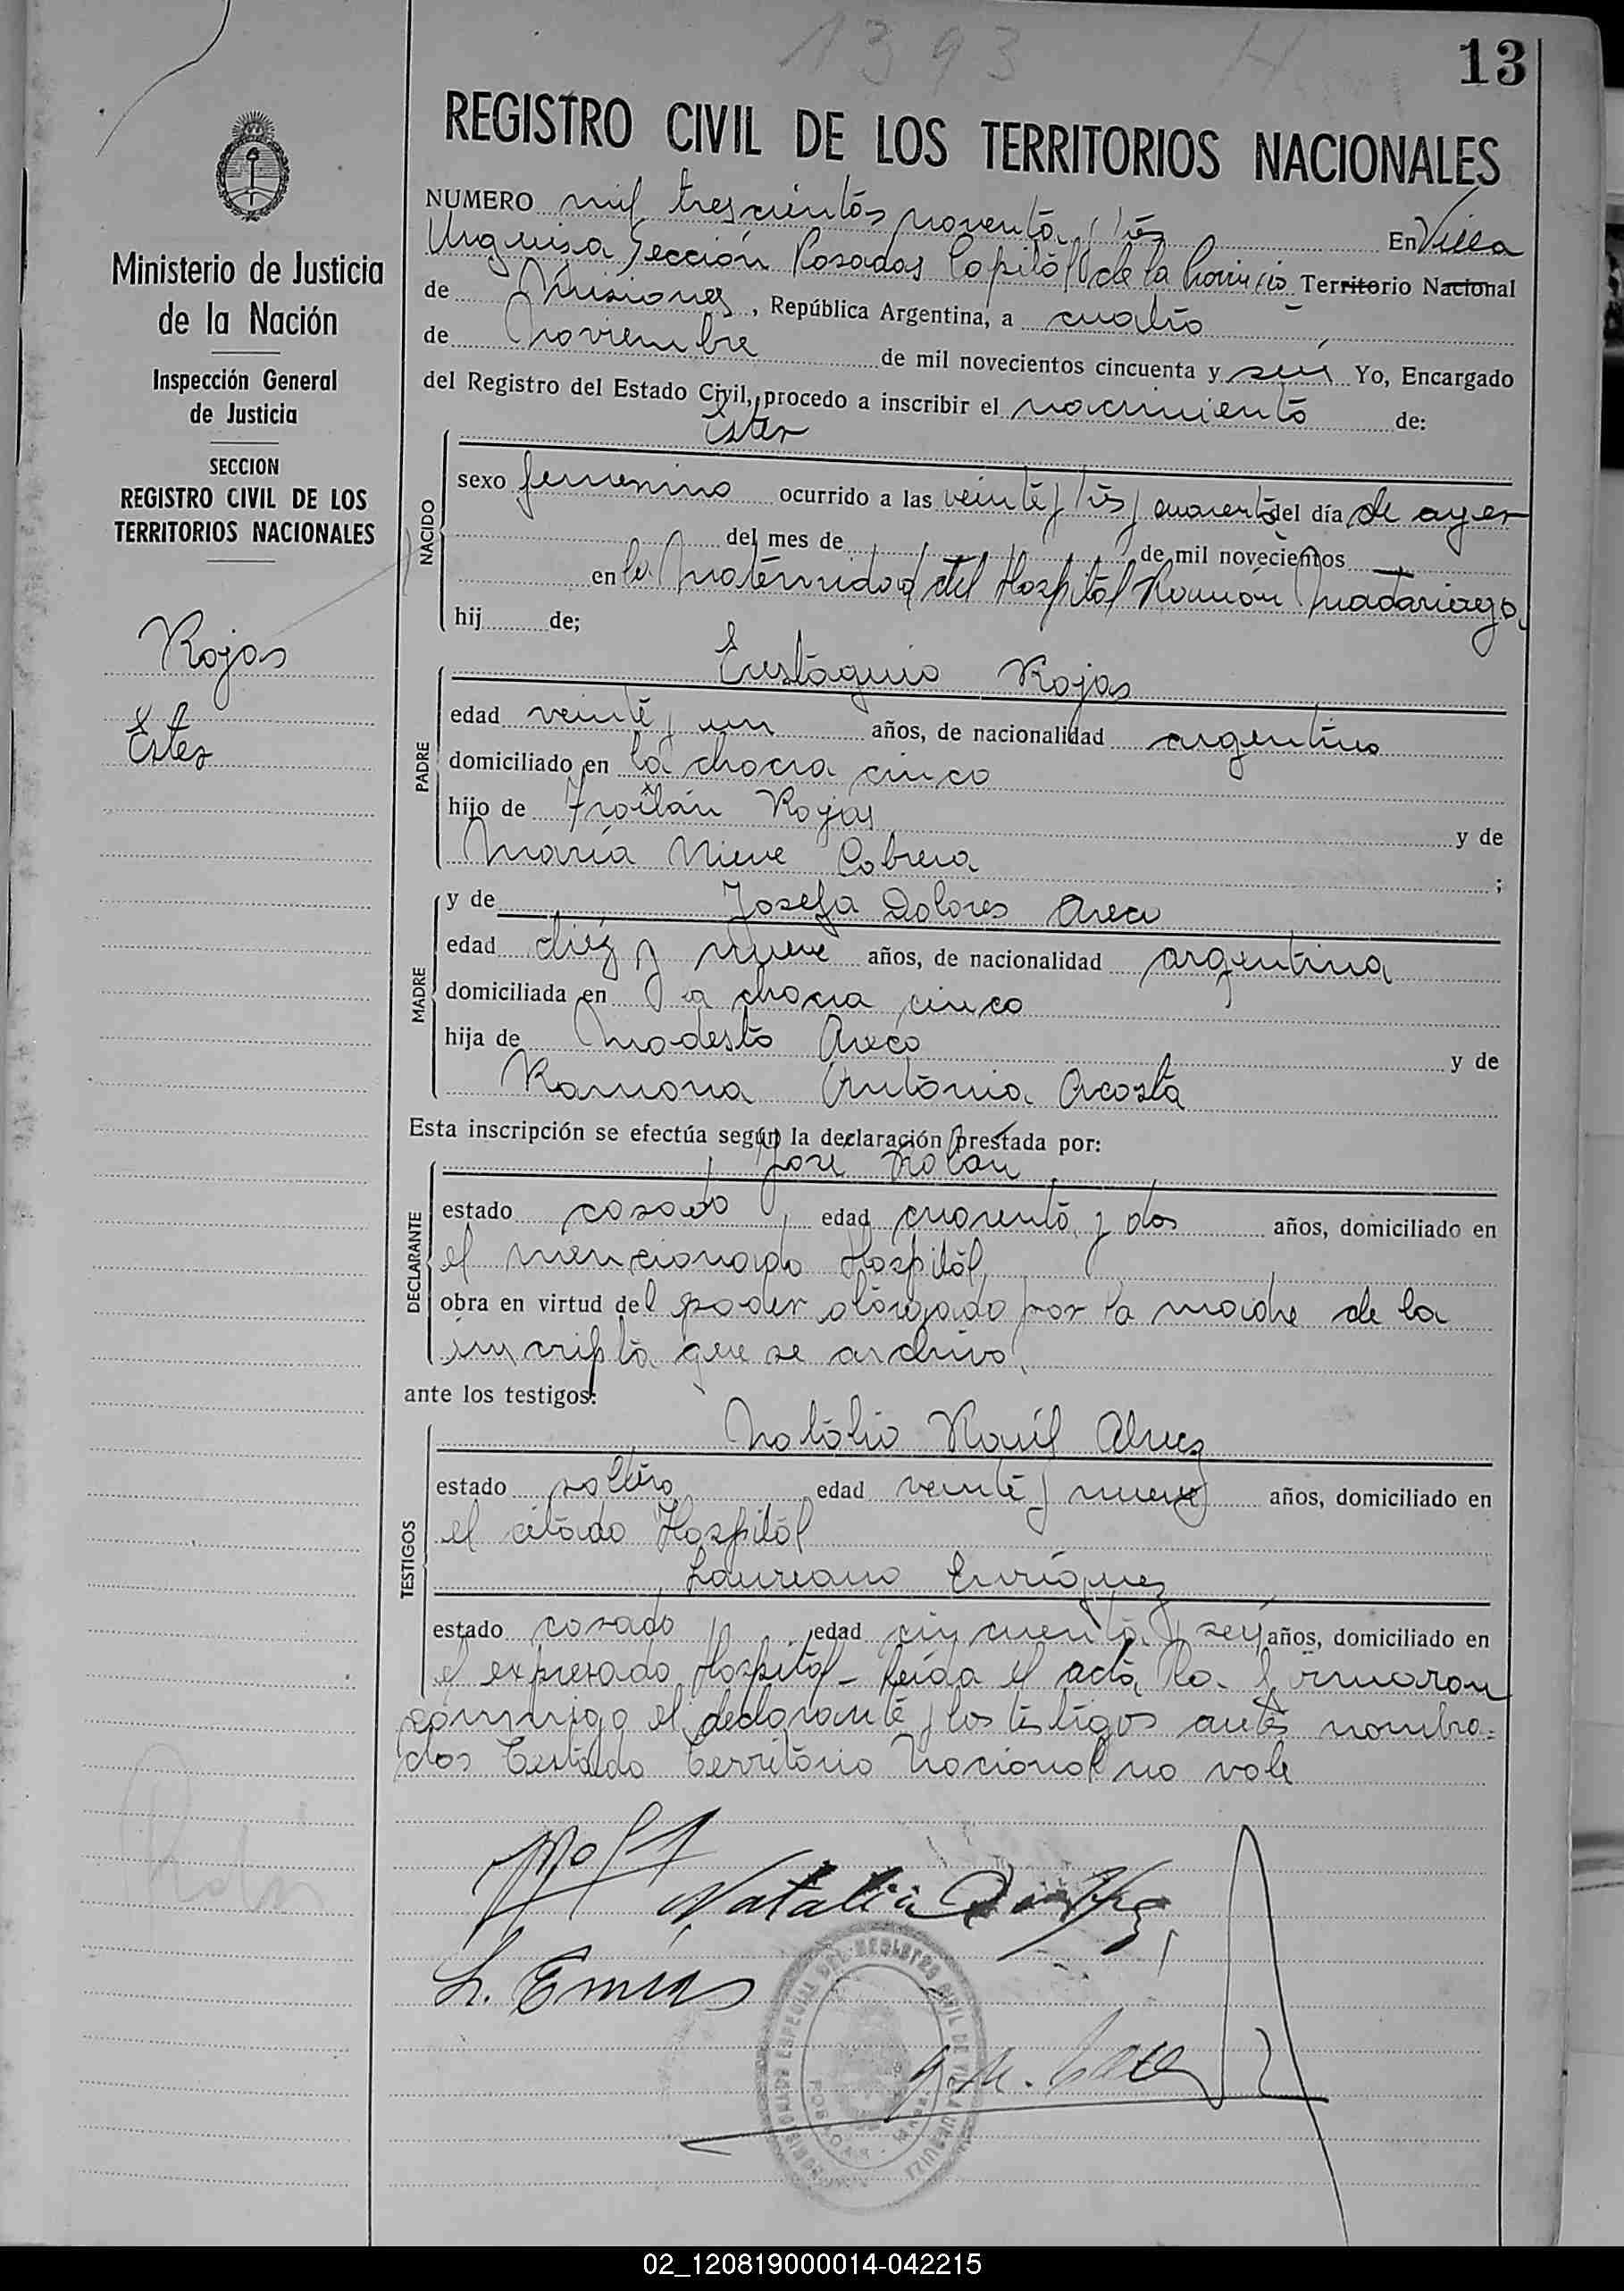 1393
13
REGISTRO CIVIL DE LOS TERRITORIOS NACIONALES
Ministerio de Justicia
de la Nación
Inspección General
de Justicia
SECCION
REGISTRO CIVIL DE LOS
TERRITORIOS NACIONALES
Rojas
Ester
NUMERO mil trescientos noventa y tres En Villa
Urquiza Sección Posadas Capital de la Provincia Territorio Nacional
de Misiones, República Argentina, a cuatro
de Noviembre de mil novecientos cincuenta y seis Yo, Encargado
del Registro del Estado Civil, procedo a inscribir el nacimiento de:
Ester
NACIDO
sexo femenino ocurrido a las veinte y tres y cuarenta del día de ayer
del mes de de mil novecientos
en la Maternidad del Hospital Ramón Madariaga
hij de;
Eustaquio Rojas
PADRE
edad veinte y un años, de nacionalidad argentino
domiciliado en la chacra cinco
hijo de Froilán Rojas y de
María Nieve Cabrera ;
y de Josefa Dolores Areco
MADRE
edad diez y nueve años, de nacionalidad argentina
domiciliada en la chacra cinco
hija de Modesto Areco y de
Ramona Antonia Acosta
Esta inscripción se efectúa según la declaración prestada por:
José Rolan
DECLARANTE
estado casado, edad cuarenta y dos años, domiciliado en
el mencionado Hospital,
obra en virtud del poder otorgado por la madre de la
inscripta que se archiva.
ante los testigos:
Natalio Raúl
TESTIGOS
estado soltero edad veinte y nueve años, domiciliado en
el citado Hospital
Laureano Enríquez
estado casado, edad cincuenta y seis años, domiciliado en
el expresado Hospital - Leída el acta la firmaron
conmigo el declarante y los testigos antes nombra=
dos Testado Territorio Nacional no vale
DEL REGISTRO CIVIL DE VILLA URQUIZA
POSADAS
02_120819000014-042215